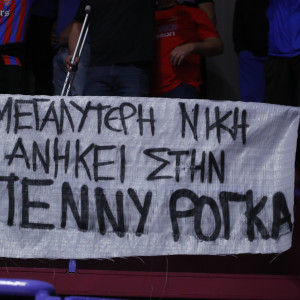 ΜΕΓΑΛΥΤΕΡΗ ΝΙΚΗ
ΑΝΗΚΕΙ ΣΤΗΝ
ΠΕΝΝΥ ΡΟΓΚΑ